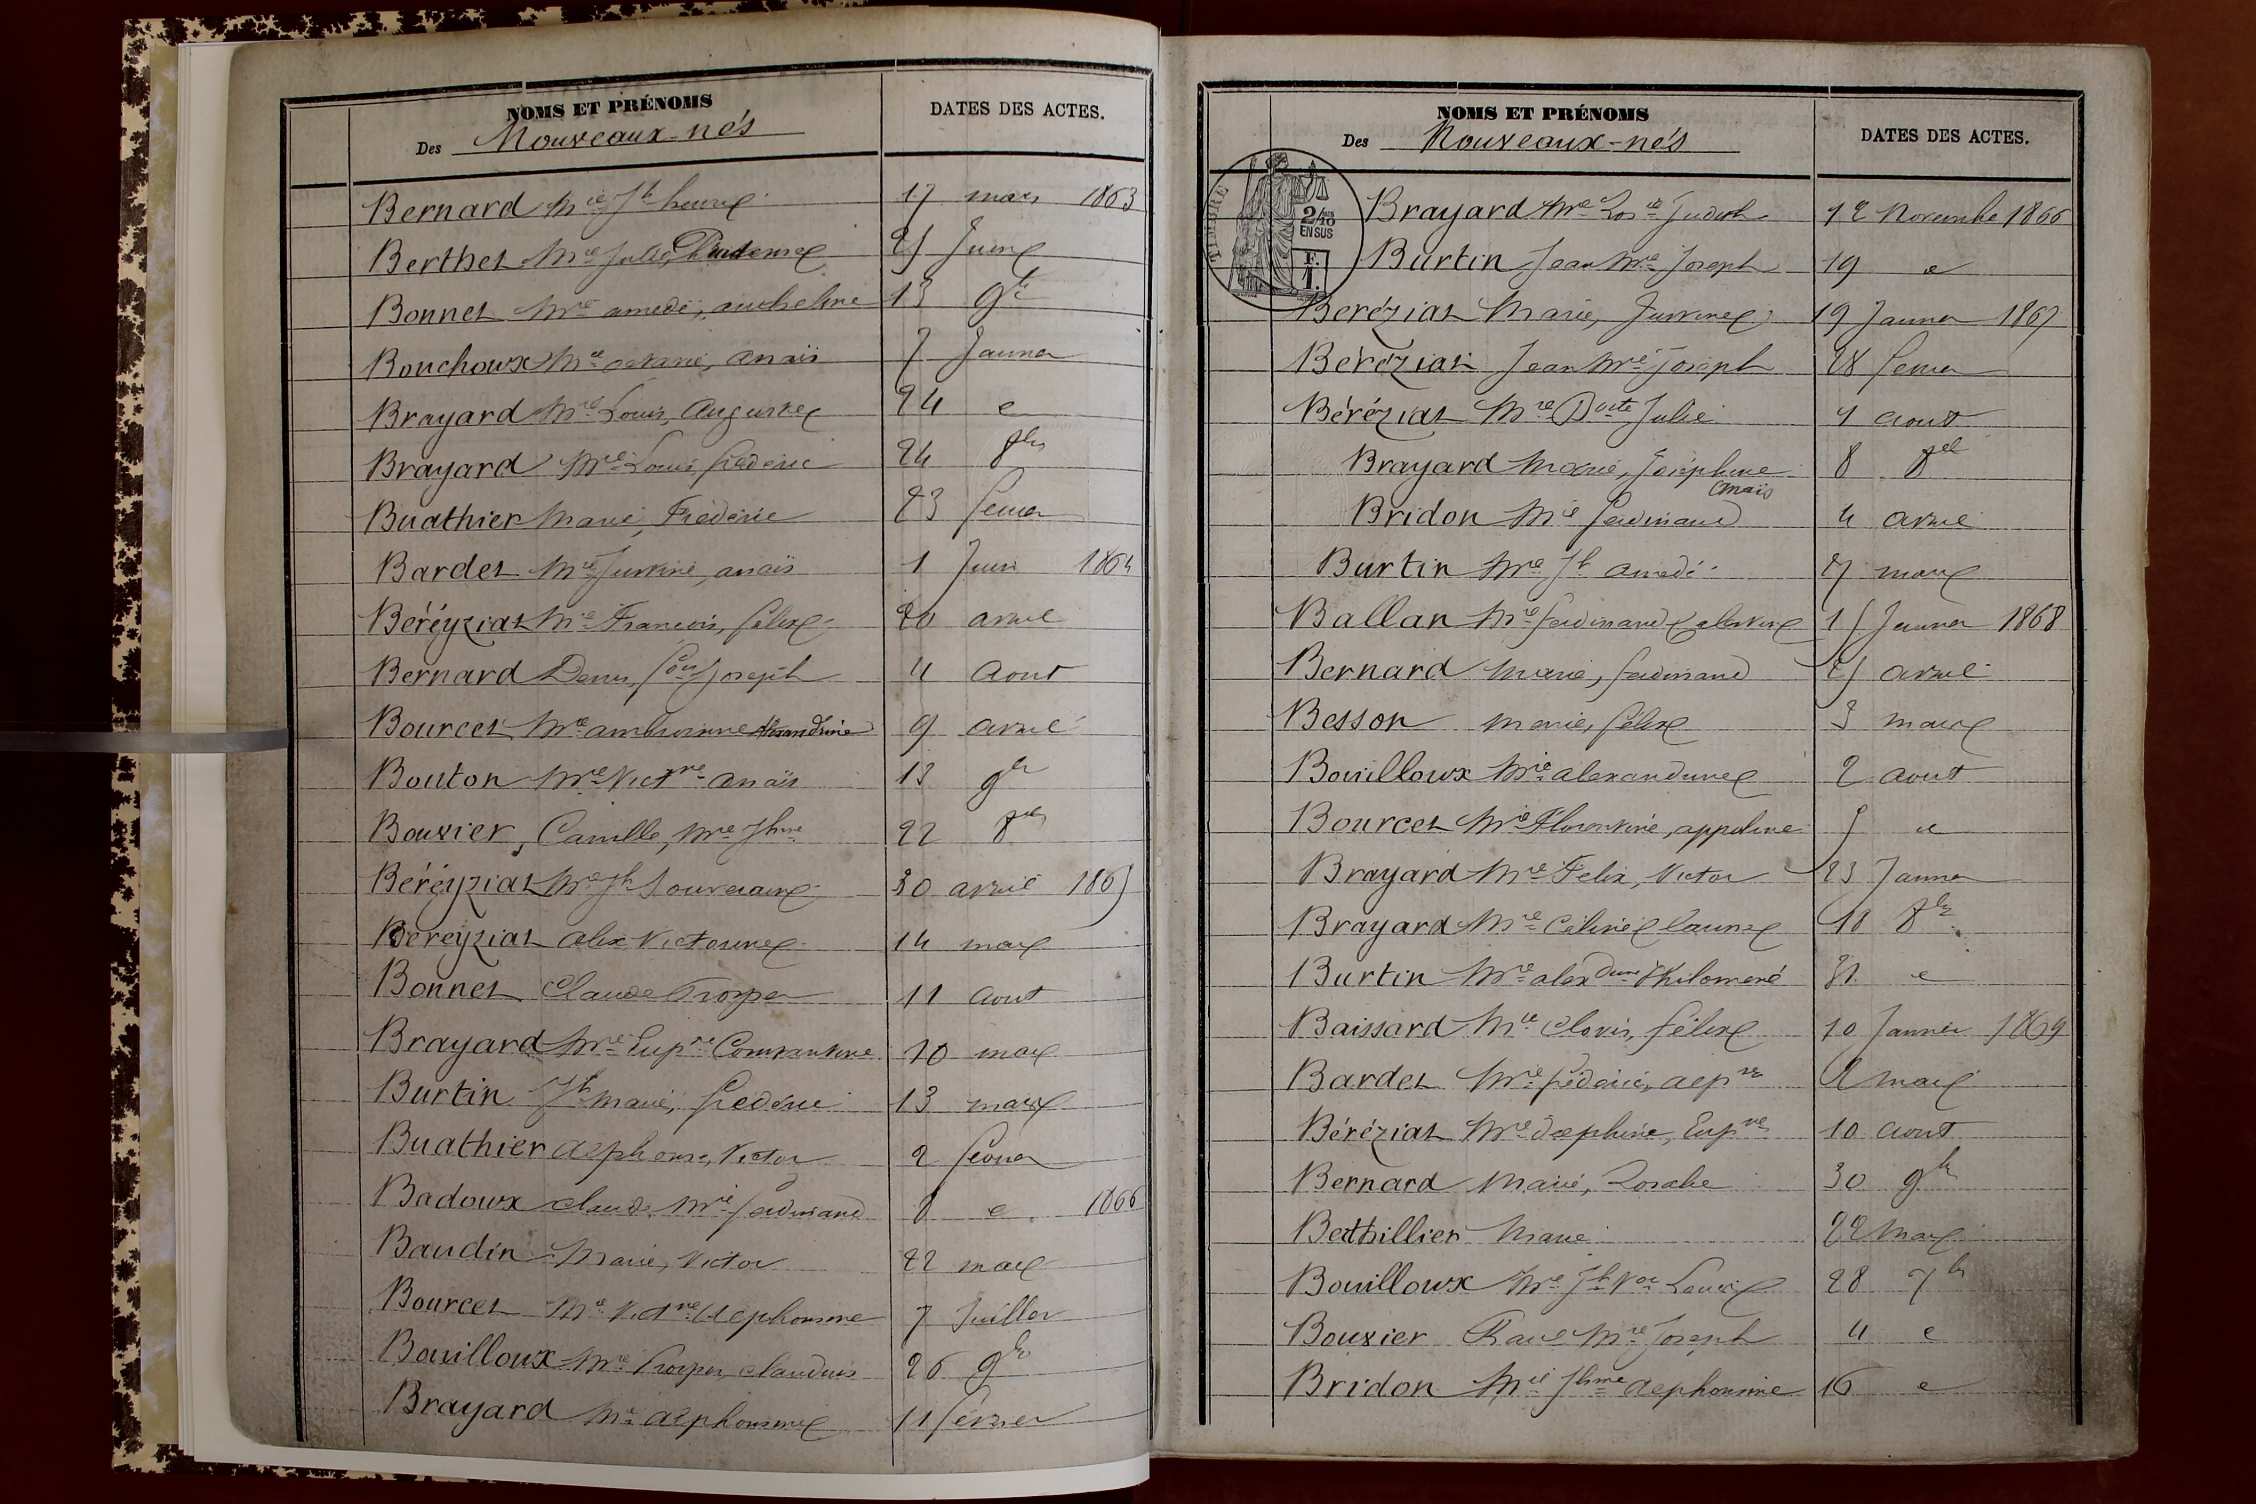 NOMS ET PRÉNOMS
Des Nouveaux-nés
DATES DES ACTES.
Bernard Mie Jh 17 mars 1863
Berthet Mie Julie, Prudence 25 Juin
Bonnet Mie amedé, 13 9bre
Bouchoux Mie octavie, anaïs 7 Janvier
Brayard Mie Louis, Auguste 24 e
Brayard Mie Louis frédéric 24 8bre
Buathier Marie, Frédéric 23 fevrier
Bardet Mie Justine, anaïs 1 Juin 1864
Béréyziat Mie François, félix 20 avril
Bernard Denis, Joseph 4 Aout
Bourcet Mie ambroisine Alexandrine 9 avril
Bouton Mie Victne anaïs 13 9bre
Bouvier, Camille, Mie Jhine 22 8bre
Béréyziat Mie Jh 30 avril 1865
Bereyziat alex Victorine 14 mars
Bonnet Claude Prosper 11 Aout
Brayard Mie Eupsie Constantine 10 mars
Burtin Jh Marie, frédéric 13 mars
Buathier alphonse, Victor 2 fevrier
Badoux claude Mie ferdinand 8 e 1866
Baudin Marie, Victor 22 mars
Bourcet Mie Victne alphonsine 7 Juillet
Bouilloux Mie Prosper, claudius 26 9bre
Brayard Mie alphonsine 11 février
NOMS ET PRÉNOMS
Des Nouveaux-nés
DATES DES ACTES.
TIMBRE
2/10
EN SUS
F.
1.
Brayard Mie Judith 12 Novembre 1866
Burtin, Jean Mie Joseph 19 e
Beréziat Marie, Justine 19 Janvier 1867
Béréziat Jean Mie Joseph 28 fevrier
Béréziat Mie Julie 1 aout
Brayard Marie, Joséphine 8 8bre
anaïs
Bridon Mie ferdinand 4 avril
Burtin Mie Jh amedé 7 mars
Ballan Mie ferdinand 15 Janvier 1868
Bernard Marie, ferdinand 25 avril
Besson Marie, félix 3 mars
Bouilloux Mie alexandrine 2 aout
Bourcet Mie Florentine, appoline 5 e
Brayard Mie Felix, Victor 23 Janvier
Brayard Mie 18 8bre
Burtin Mie alexdrine Philomené 31 e
Baissard Mie Clovis, félix 10 Janvier 1869
Bardet Mie frédéric, 2 mars
Béréziat Mie Josephine, 10 aout
Bernard Marie, Rosalie 30 9bre
Bethillier Marie 22 Mars
Bouilloux Mie Jh Vor Louis 28 7bre
Bouvier Mie Joseph 4 e
Bridon Mie Jhine alphonsine 16 e